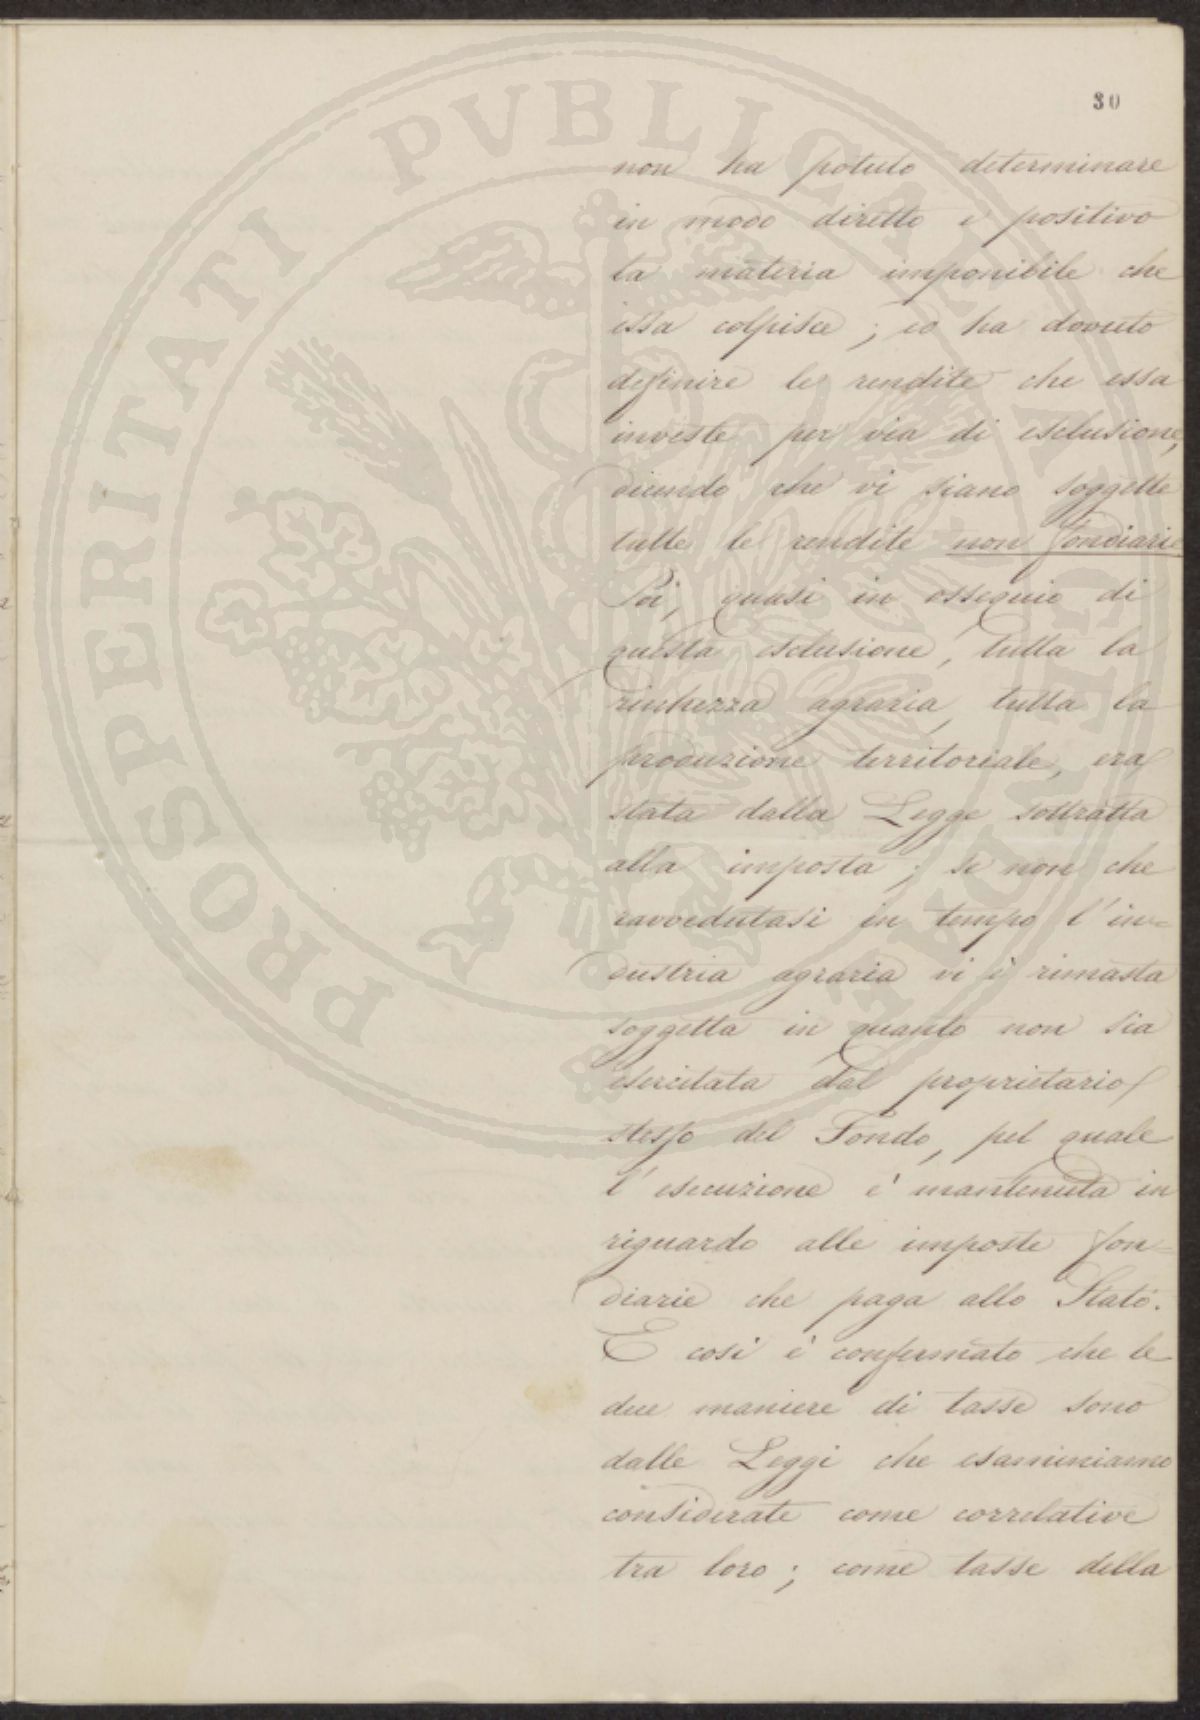 30
non ha potuto determinare
in modo diretto e positivo
la materia imponibile che
essa colpisce; ed ha dovuto
definire le rendite che essa
investe per via di esclusione,
dicendo che vi siano soggette
tutte le rendite non fondiarie
Poi, quasi in ossequio di
questa esclusione, tutta la
ricchezza agraria, tutta la
produzione territoriale, era
stata dalla Legge sottratta
alla imposta; se non che
ravvedutasi in tempo l'in-
dustria agraria vi è rimasta
soggetta in quanto non sia
esercitata dal proprietario
stesso del Fondo, pel quale
l'esecuzione è mantenuta in
riguardo alle imposte fon-
diarie che paga allo Stato.
E così è confermato che le
due maniere di tasse sono
dalle Leggi che esaminiamo
considerate come correlative
tra loro; come tasse della
PROSPERITATI PVBLICAE AVGENDAE